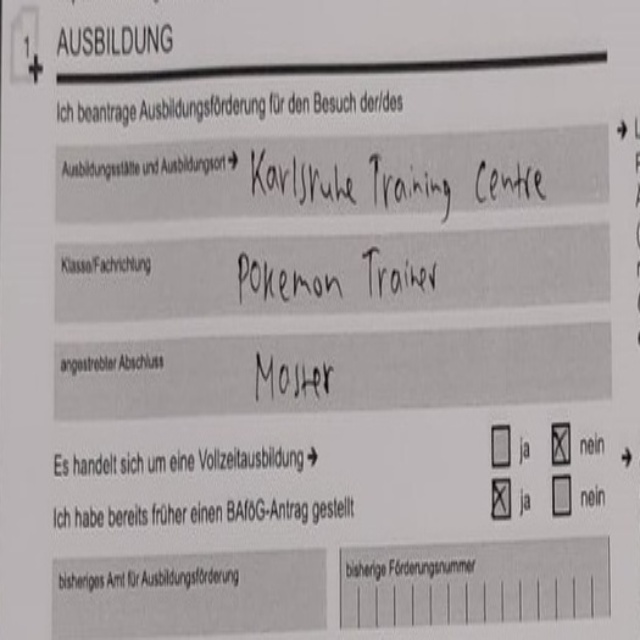 1 AUSBILDUNG
Ich beantrage Ausbildungsförderung für den Besuch der/des
Ausbildungsstätte und Ausbildungsort → Karlsruhe Training Centre
Klasse/Fachrichtung Pokemon Trainer
angestrebter Abschluss Master
Es handelt sich um eine Vollzeitausbildung → ja nein
Ich habe bereits früher einen BAföG-Antrag gestellt ja nein
bisheriges Amt für Ausbildungsförderung bisherige Förderungsnummer